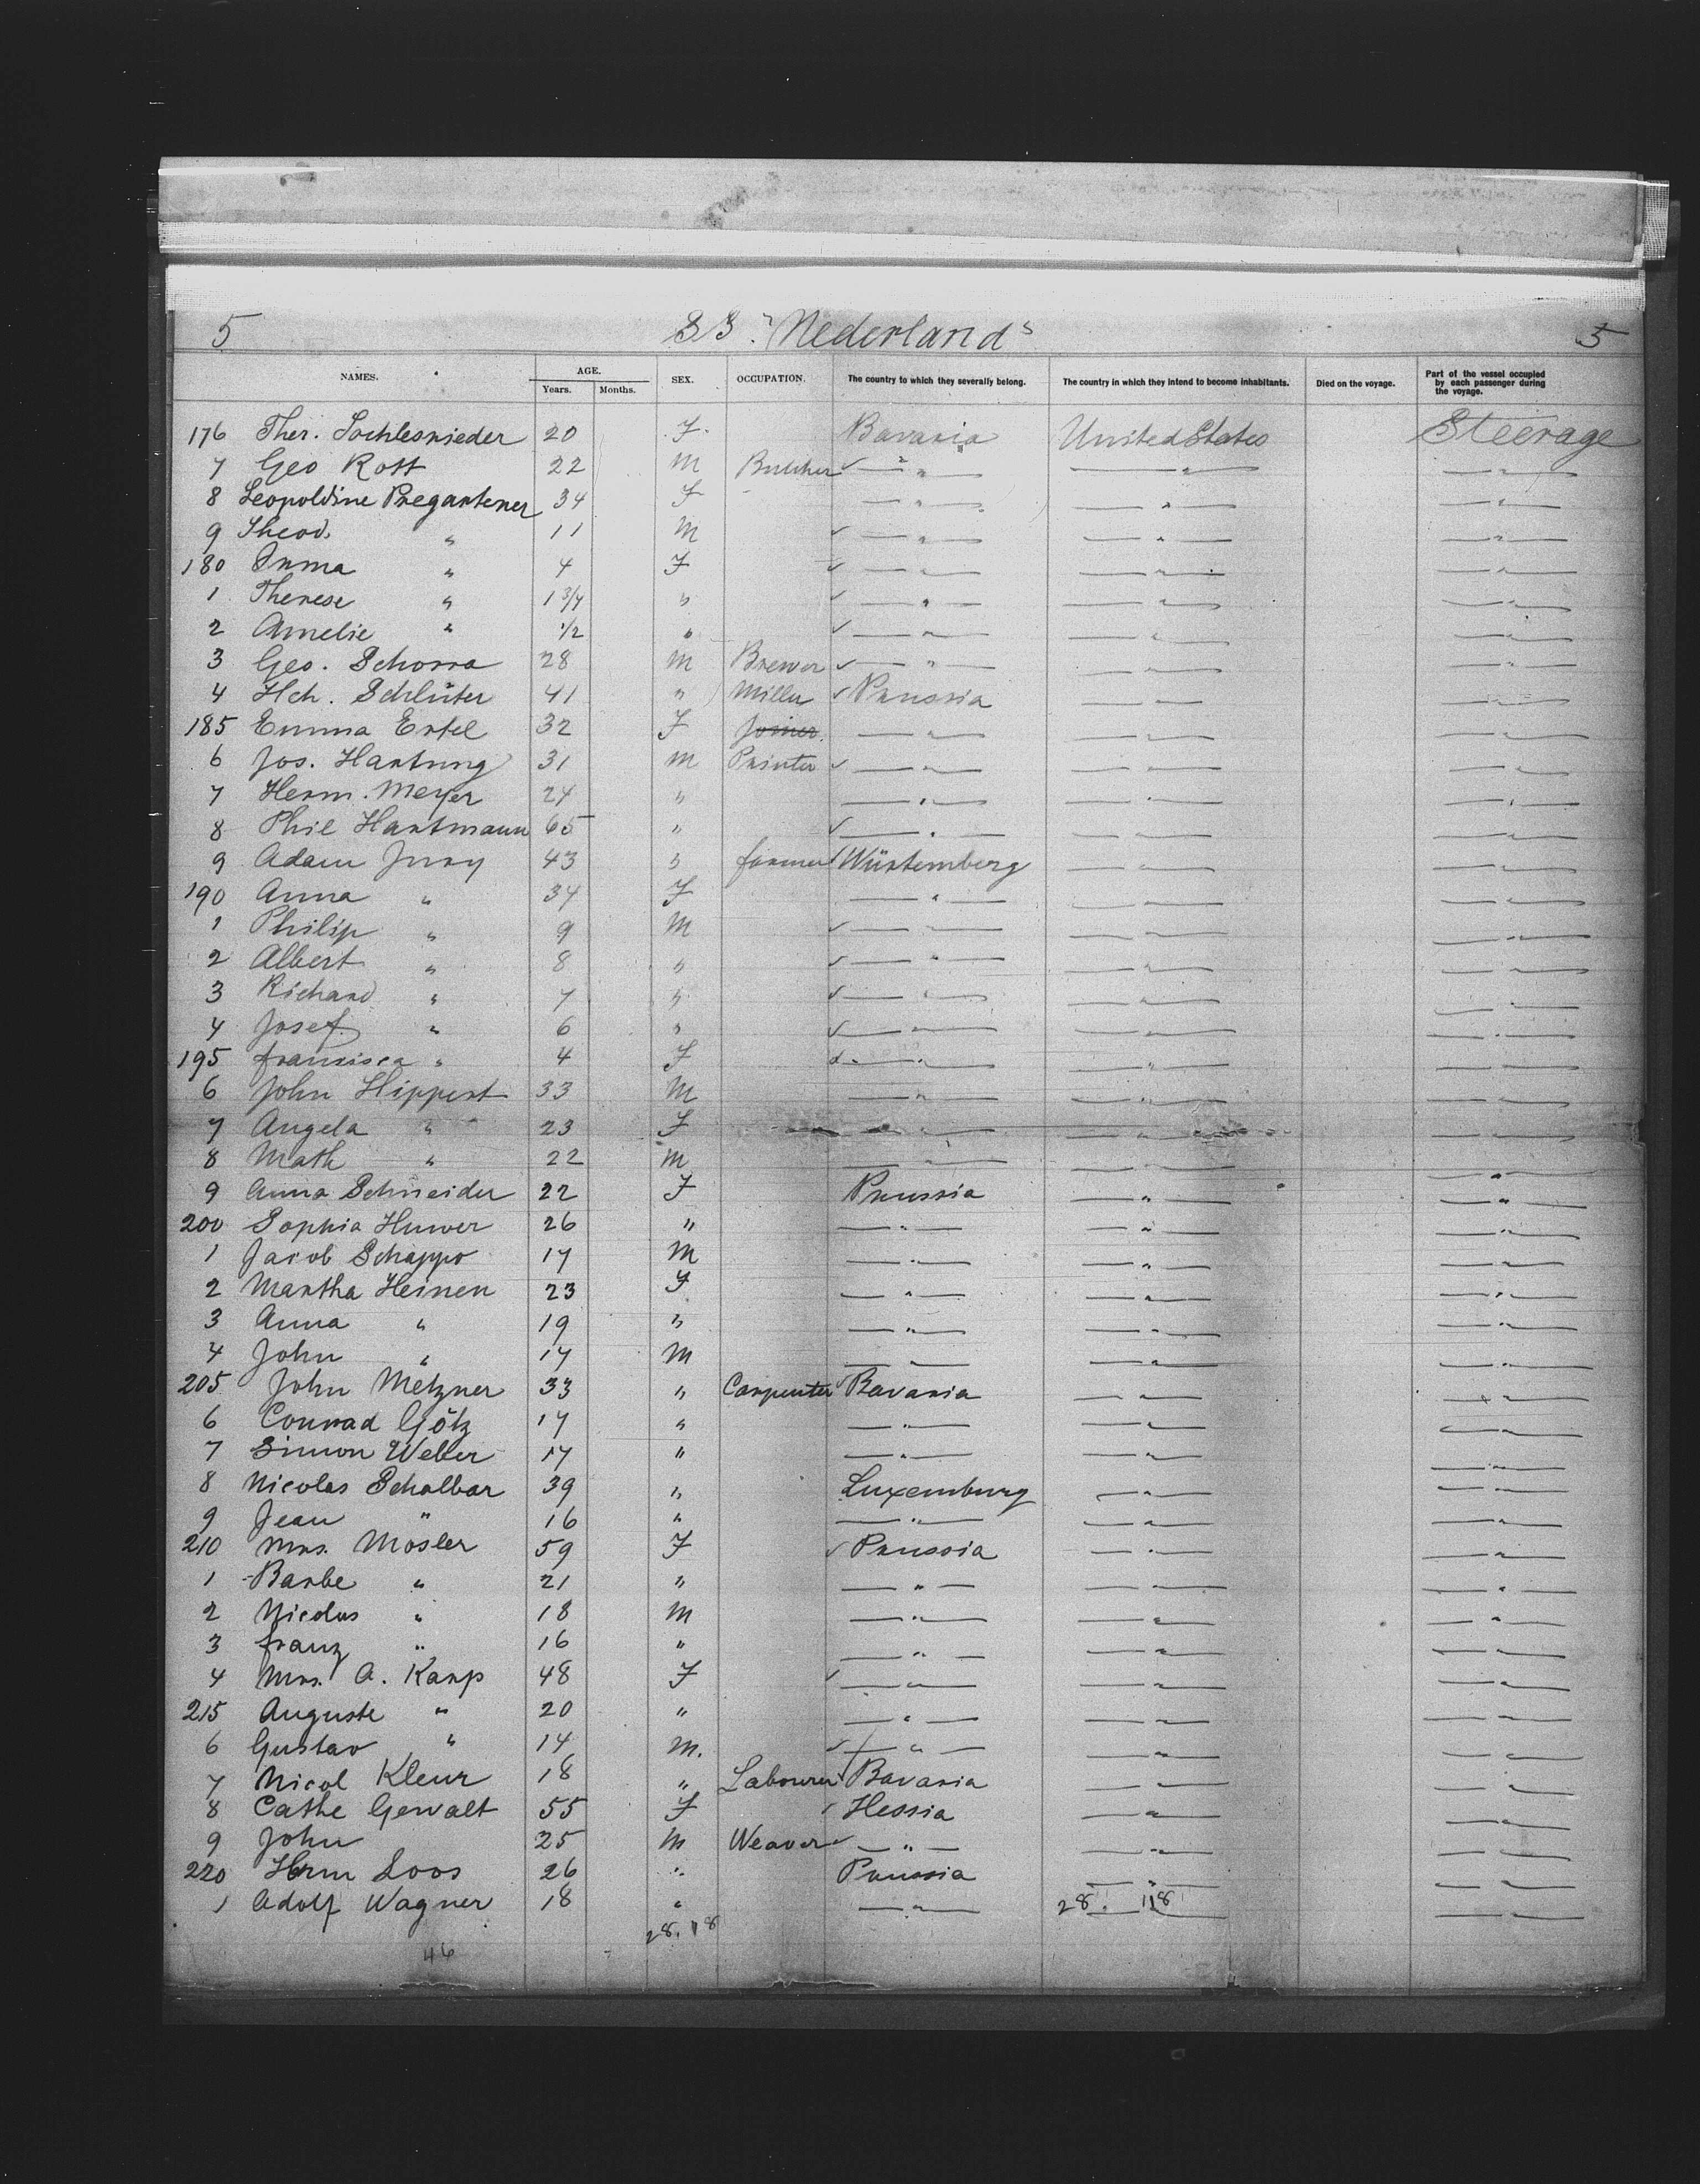 5 SS. "Nederland" 5
NAMES. AGE. Years. Months. SEX. OCCUPATION. The country to which they severally belong. The country in which they intend to become inhabitants. Died on the voyage. Part of the vessel occupied by each passenger during the voyage.
176 Ther. 20 F. Bavaria United States Steerage
7 Geo Rott 22 M Butcher ✓ — " — — " — — " —
8 Leopoldine Pregartener 34 F — " — — " — — " —
9 Theod. " 11 M ✓ — " — — " — — " —
180 Emma " 4 F ✓ — " — — " — — " —
1 Therese " 1 3/4 " ✓ — " — — " — — " —
2 Amelie " 1/2 " ✓ — " — — " — — " —
3 Geo. Schorra 28 M Brewer ✓ — " — — " — — " —
4 Hch. Schlüter 41 " Miller ✓ Prussia — " — — " —
185 Emma Ertel 32 F Joiner. — " — — " — — " —
6 Jos. Hartung 31 M Printer ✓ — " — — " — — " —
7 Herm. Meyer 24 " — " — — " — — " —
8 Phil Hartmann 65 " ✓ — " — — " — — " —
9 Adam Jury 43 " farmer ✓ Würtemberg — " — — " —
190 Anna " 34 F — " — — " — — " —
1 Philip " 9 M ✓ — " — — " — — " —
2 Albert " 8 " ✓ — " — — " — — " —
3 Richard " 7 " ✓ — " — — " — — " —
4 Josef " 6 " ✓ — " — — " — — " —
195 francisca " 4 F — " — — " — — " —
6 John Hippert 33 M — " — — " — — " —
7 Angela " 23 F — " — — " — — " —
8 Math " 22 M — " — — " — — " —
9 Anna Schneider 22 F Prussia — " — — " —
200 Sophia Huwer 26 " — " — — " — — " —
1 Jacob Schappo 17 M — " — — " — — " —
2 Martha Heinen 23 F — " — — " — — " —
3 Anna " 19 " — " — — " — — " —
4 John " 17 M — " — — " — — " —
205 John Metzner 33 " Carpenter ✓ Bavaria — " — — " —
6 Conrad Götz 17 " — " — — " — — " —
7 Simon Weber 17 " — " — — " — — " —
8 Nicolas Schalbar 39 " Luxemburg — " — — " —
9 Jean " 16 " — " — — " — — " —
210 Mrs. Mosler 59 F ✓ Prussia — " — — " —
1 Barbe " 21 " — " — — " — — " —
2 Nicolas " 18 M — " — — " — — " —
3 franz " 16 " — " — — " — — " —
4 Mrs. A. Karp 48 F ✓ — " — — " — — " —
215 Auguste " 20 " — " — — " — — " —
6 Gustav " 14 M. ✓ — " — — " — — " —
7 Nicol Kleur 18 " Labourer ✓ Bavaria — " — — " —
8 Cathe Gerwalt 55 F ✓ Hessia — " — — " —
9 John 25 M Weaver ✓ — " — — " — — " —
220 Hrm Loos 26 " Prussia — " — — " —
1 Adolf Wagner 18 " — " — 28. 118 — " —
28. 118
46